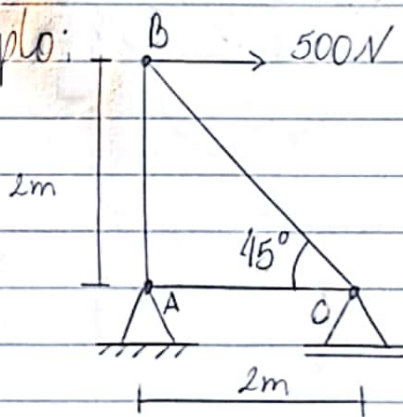 plo:
B
500N
2m
45°
A
C
2m